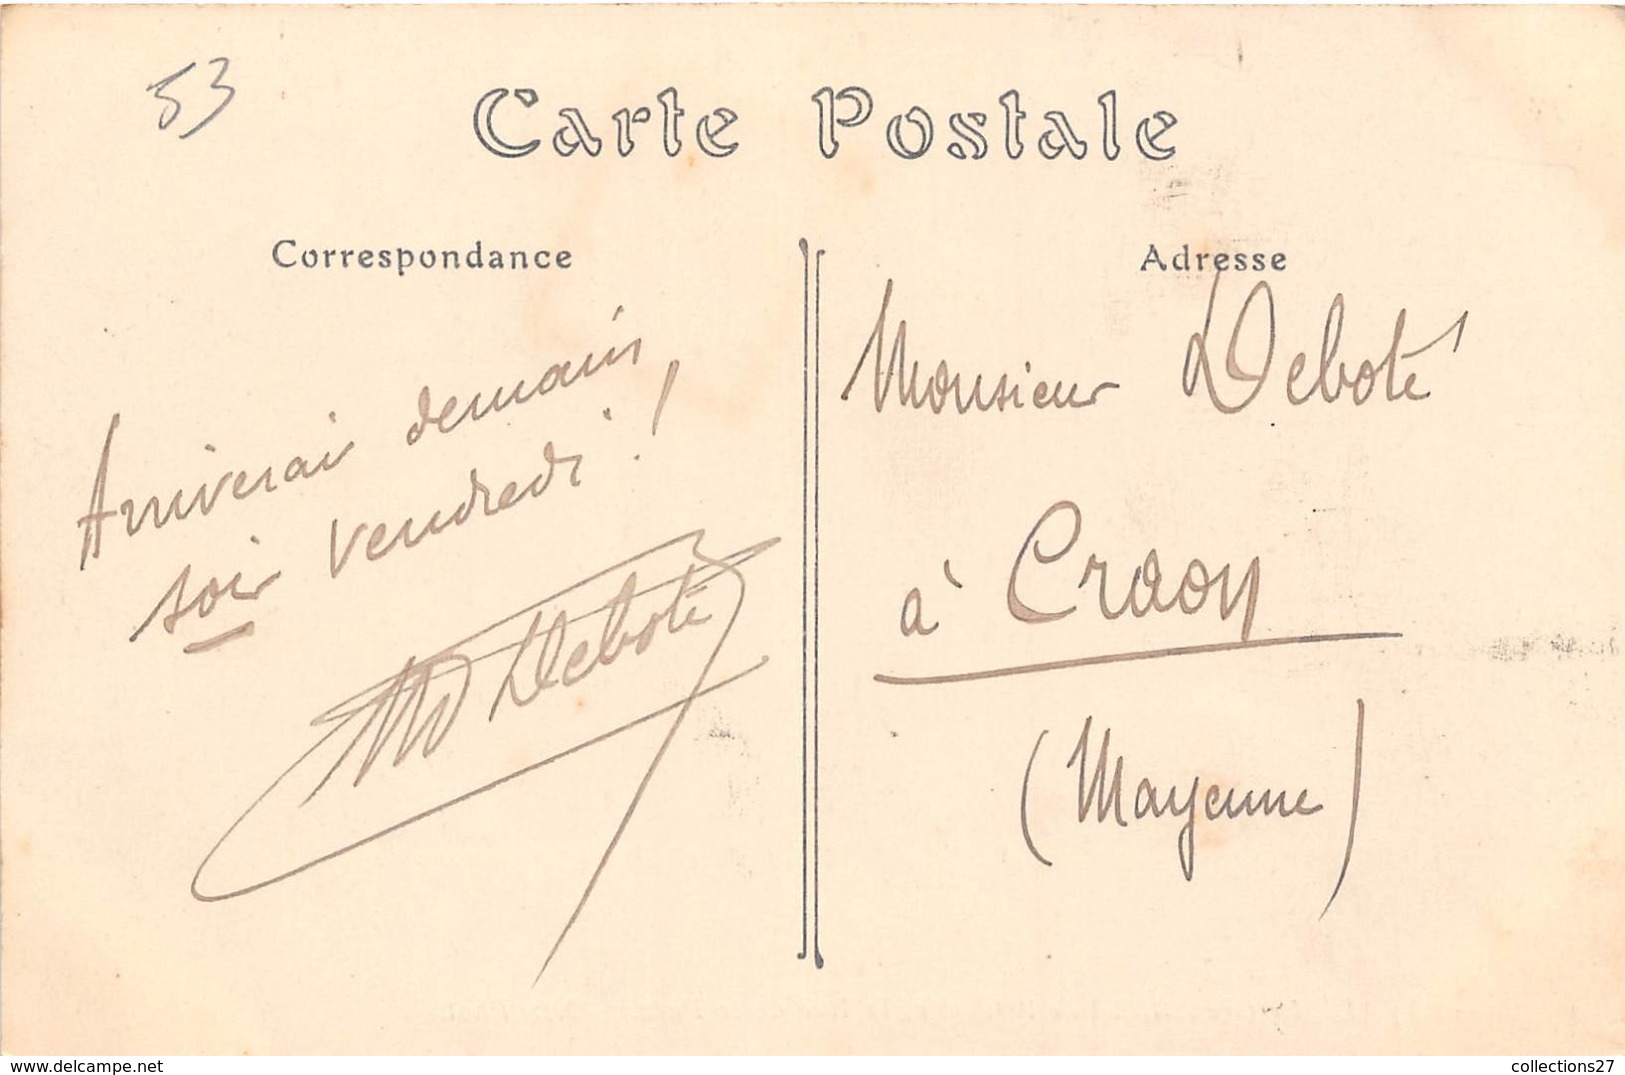 53
Carte Postale
Correspondance
Arriverai demain
soir vendredi !
Deboté
Adresse
Monsieur Deboté
à Craon
(Mayenne)
https://www.delcampe.net
collections27